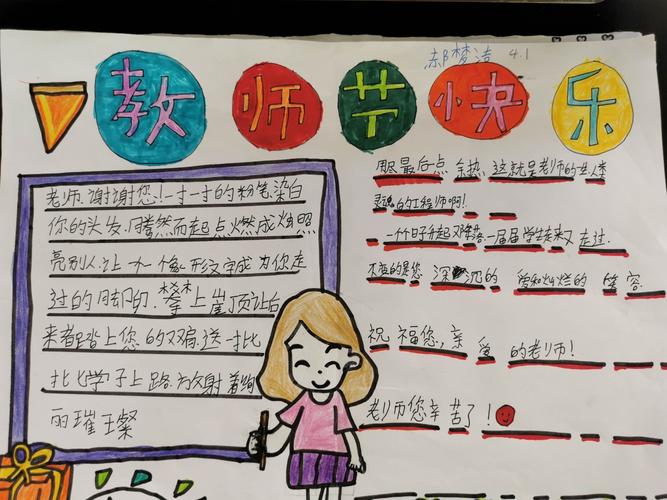 郝梦洁 4.1
教师节快乐
老师,谢谢您!一寸一寸的粉笔染白
你的头发,腾然而起点燃成烛照
亮别人,让 像形文字成为你走
过的脚印,攀上崖顶让后
来者踏上您的双肩,送一批
批学子上路为放射着绚
丽璀璨
用尽最后点余热,这就是老师的 人类
灵魂的工程师啊!
日子升起又降落一届届学生走来又走过.
不变的是您深沉的爱和灿烂的笑容.
祝福您,亲爱的老师!
老师您辛苦了!